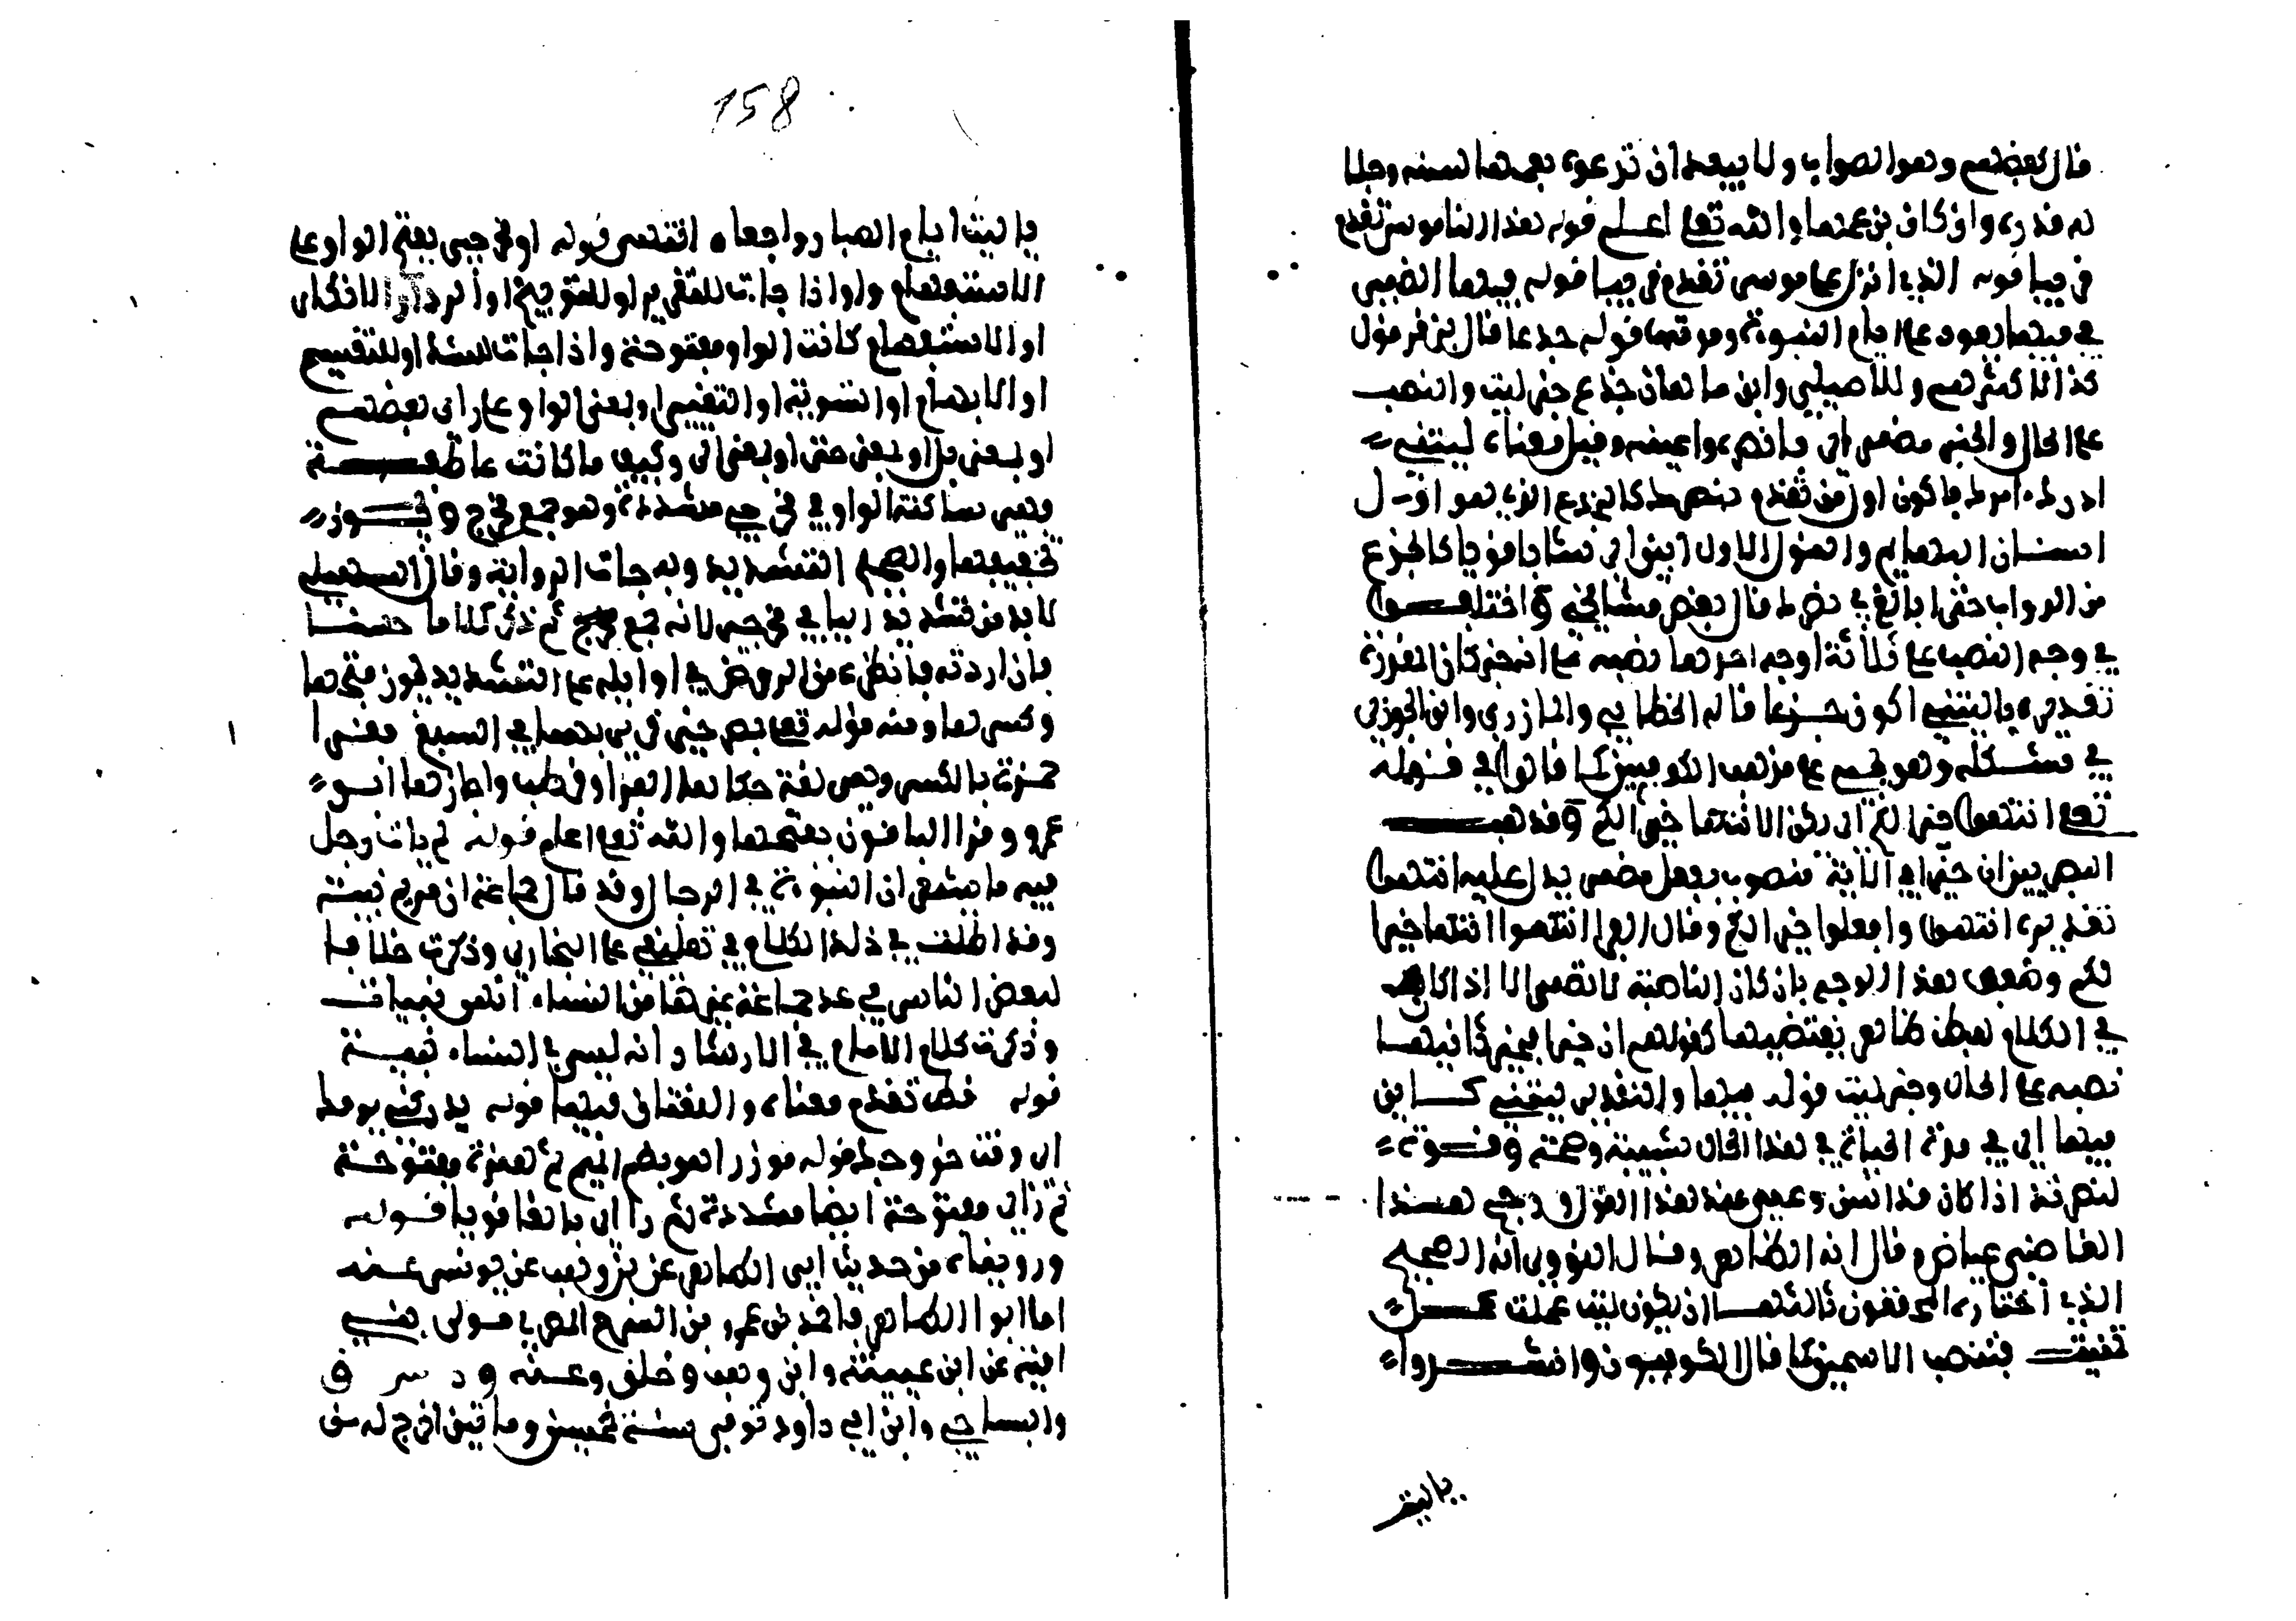 قال بعضهم وهو الصواب ولا يبعد ان تدعوه بعمها لسنه وجلا
لة قدره وان كان بن عمها والله تعلى اعلم قوله هذا الناموس تقدم
قريبا قوله الذي انزل على موسى تقدم قريبا قوله فيها الضمير
في فيها يعود على ايام النبوة ومدتها قوله جدعا قال بن قرقول
كذا لاكثرهم وللاصيلي وابن ماهان جذع خبر ليت والنصب
على الحال والخبر مضمر اي فانصره واعينه وقيل معناه ليتني
ادرك امرك فاكون اول من تقدم بنصرك كالجذع الذي هو اول
اسنان البهايم والقول الاول ابين اي شابا قويا كالجذع
من الدواب حتى ابالغ في نصرك قال بعض مشايخي واختلفوا
في وجه النصب على ثلاثة اوجه احدها نصبه على انه خبر كان المقدرة
تقديره يا ليتني اكون جذعا قاله الخطابي والمازري وابن الجوزي
في مشكله وهو يجيء على مذهب الكوفيين كما قالوا في قوله
تعلى انتهوا خيرا لكم اي يكن الانتهاء خيرا لكم وقد ذهب
البصريين ان خيرا في الاية منصوب بفعل مضمر يدل عليه انتهوا
تقديره انتهوا وافعلوا خيرا لكم وقال الفرا انتهوا انتهاء خيرا
لكم وضعف هذا الوجه بان كان الناصبة لا تضمر الا اذا كان
في الكلام لفظ ظاهر يقتضيها كقولهم ان خيرا فخير ثانيها
نصبه على الحال وخبر ليت قوله فيها والتقدير ليتني كاين
فيها اي في مدة الحياة في هذا الحال شبيبة وصحة وقوة
لنصرتك اذا كان قد اسن وعمي عند هذا القول ورجح هذا
القاضي عياض وقال انه الظاهر وقال النووي انه الصحيح
الذي اختاره المحققون ثالثها ان يكون ليت عملت عمل
تمنيت فتنصب الاسمين كما قال الكوفيون وانشدوا
يا ليت
158
يا ليت ايام الصبا رواجعا انتهى قوله او مخرجي بفتح الواو على
الاستفهام واو اذا جات للتقرير او للتوبيخ او الرد او الانكار
او الاستفهام كانت الواو مفتوحة واذا جات للشك او للتقسيم
او الابهام او التسوية او التخيير او بمعنى الواو على راي بعضهم
او بمعنى بل او بمعنى حتى او بمعنى الى وكيف ما كانت عاطفة
فهي ساكنة الواو في مخرجي مشددة وهو جمع مخرج ويجوز
تخفيفها والصحيح التشديد وبه جات الرواية وقال السهيلي
لابد من تشديد اليا في مخرجي لانه جمع ثم ذكر كلاما حسنا
فان اردته فانظره من الروض في اوايله على التشديد يجوز فتحها
وكسرها ومنه قوله تعلى بمصرخي قري بهما في السبع فقرا
حمزة بالكسر وهي لغة حكاها الفرا وقطرب واجازها ابو
عمرو وقرا الباقون بفتحها والله تعلى اعلم قوله لم يات رجل
فيه ما يشعر ان النبوة في الرجال وقد قال جماعة ان مريم نبية
وقد اطلت في ذلك الكلام في تعليقي على البخاري وذكرت خلافا
لبعض الناس في عد جماعة غيرها من النساء انهن نبيات
وذكرت كلام الامام في الارشاد انه ليس في النساء نبية
قوله قط تقدم معناه واللغتان فيها قوله يدركني يومك
اي وقت خروجك قوله موزرا هو بضم الميم ثم همزة مفتوحة
ثم زاي مفتوحة ايضا مشددة ثم را اي بالغا قويا قوله
ورويناه من حديث ابي الطاهر عن بن وهب عن يونس عنه
اما ابوا الطاهر فاحمد بن عمرو بن السرح المصري مولى بني
امية عن ابن عيينة وابن وهب وخلق وعنه م د س ق
والساجي وابن ابي داود توفي سنة خمسين ومايتين اخرج له من